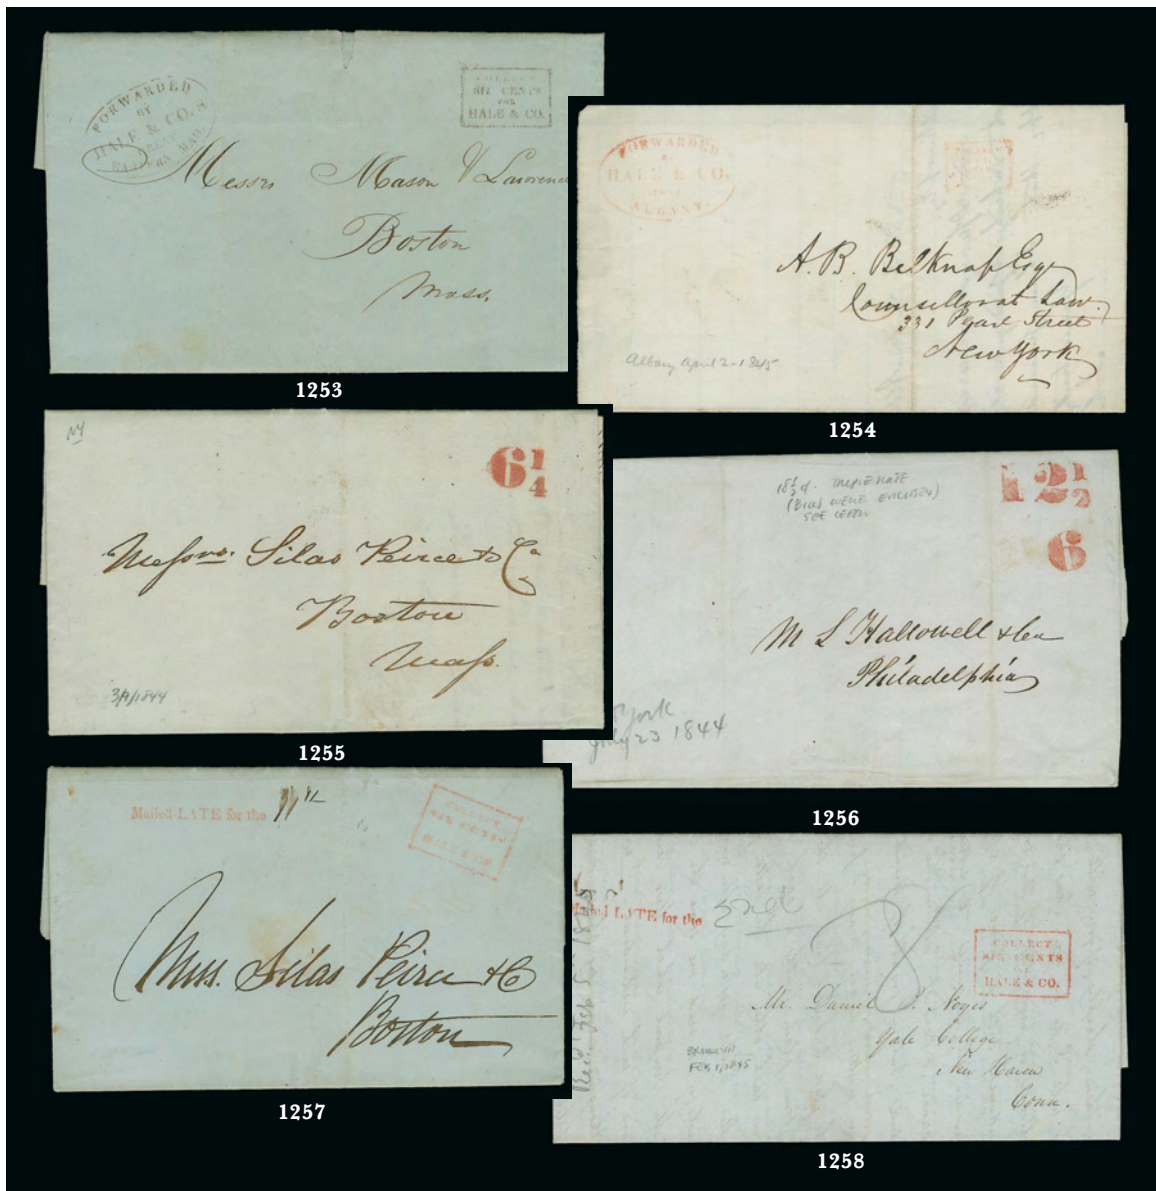 FORWARDED
BY
HALE & CO.'S
GREAT
EASTERN MAIL
COLLECT
SIX CENTS
FOR
HALE & CO.
Messrs Mason & Lawrence
Boston
Mass.
1253
FORWARDED
HALE & CO.
ALBANY.
A. B. Belknap Esqr
Counsellor at Law.
331 Pearl Street
New York
Albany April 2. 1845
1254
NY
6 1/4
Messrs. Silas Peirce & Co
Boston
Mass.
3/9/1844
1255
TRIPLE RATE
(BILLS WERE ENCLOSED)
SEE LETTER
12 1/2
6
M L Hallowell & Co
Philadelphia
York
July 23 1844
1256
Mailed LATE for the
COLLECT
SIX CENTS
HALE & CO.
Mess. Silas Peirce & Co
Boston
1257
Mailed LATE for the 2nd
COLLECT
SIX CENTS
HALE & CO.
Mr. Daniel Noyes
Yale College
New Haven
Conn.
BROOKLYN
FEB 1, 1845
1258